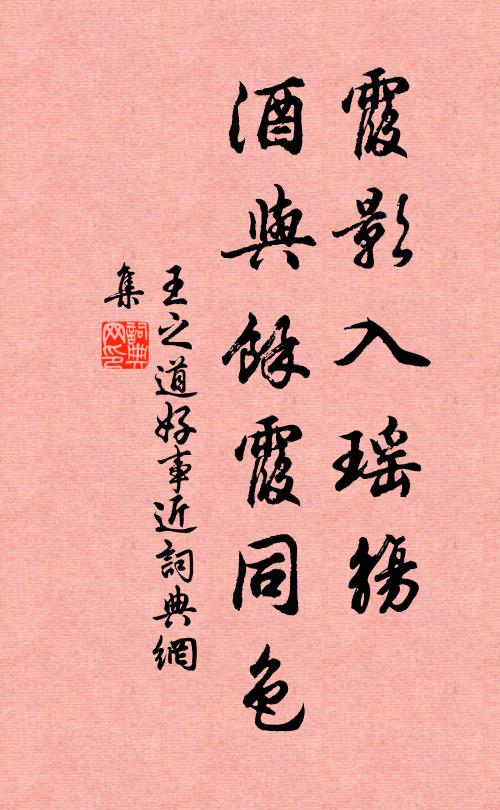 霞影入瑶觴
酒與餘霞同色
王之道好事近詞典網
集
詞典網印